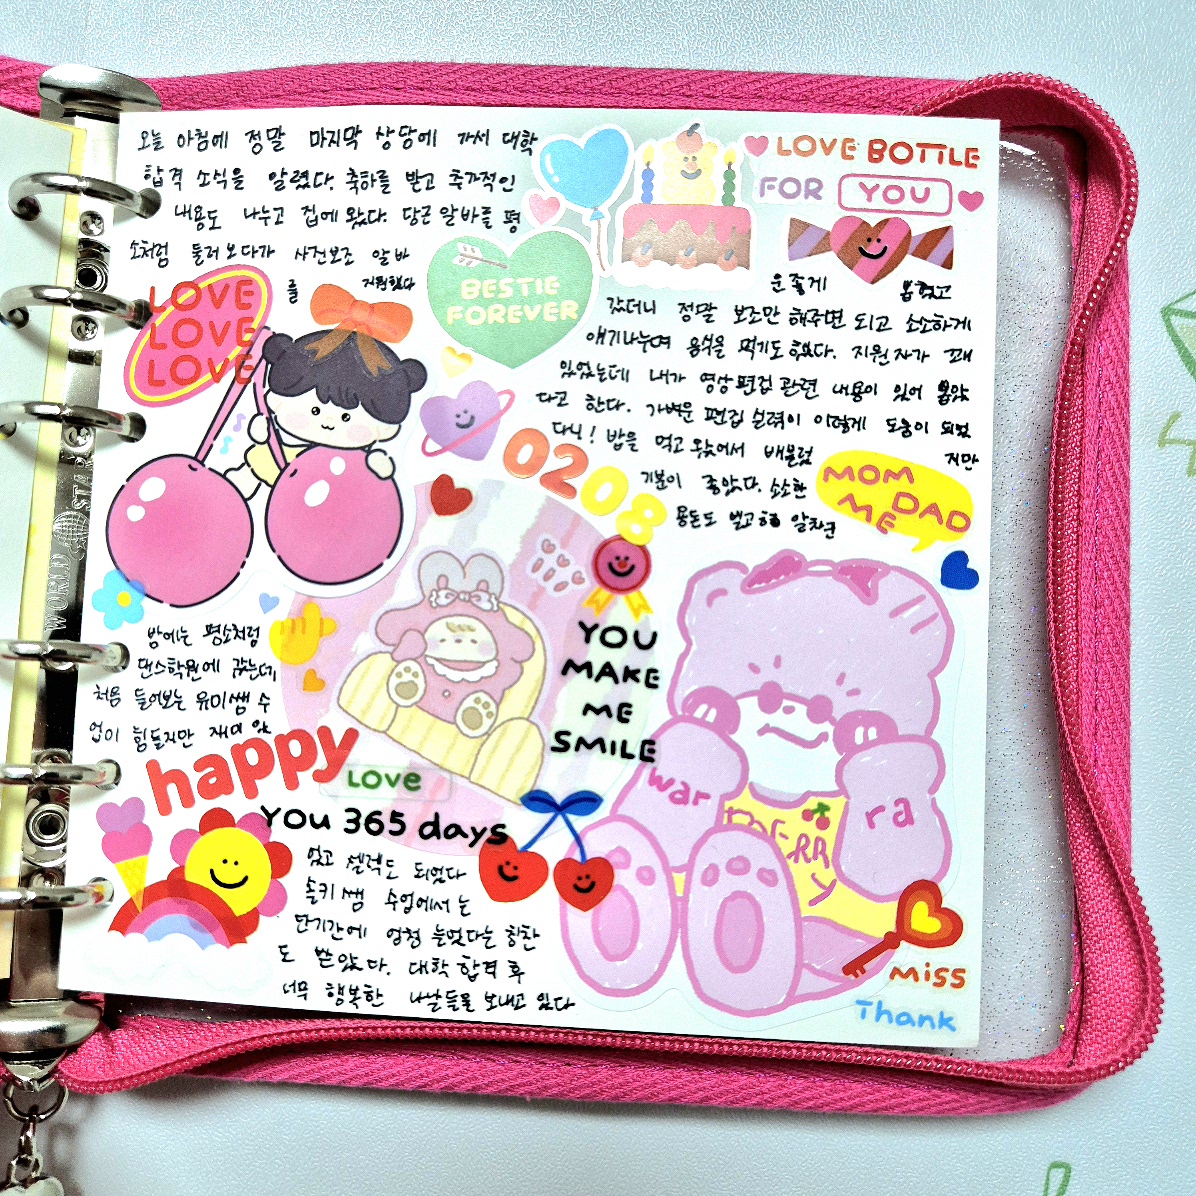 오늘 아침에 정말 마지막 상담에 가서 대학
합격 소식을 알렸다. 축하를 받고 추가적인
내용도 나누고 집에 왔다. 당근알바를 평
소처럼 둘러보다가 사건보조 알바
를 지원했다
LOVE
LOVE
LOVE
BESTIE
FOREVER
LOVE BOTTLE
FOR YOU
운좋게 뽑혔고
갔더니 정말 보조만 해주면 되고 소소하게
얘기나누며 음식을 먹기도 했다. 지원자가 꽤
있었는데 내가 영상편집 관련 내용이 있어 뽑았
다고 한다. 가벼운 편집 실력이 이렇게 도움이 되었
다니! 밥을 먹고 왔어서 배불렀지만
기분이 좋았다. 소소한
용돈도 벌고
0208
MOM
DAD
ME
YOU
MAKE
ME
SMILE
밤에는 평소처럼
댄스학원에 갔는데
처음 들어보는 유미쌤 수
업이 힘들지만 재미있
happy
LOVE
You 365 days
었고 챌린지도 되었다
솔키쌤 수업에서는
단기간에 엄청 늘었다는 칭찬
도 받았다. 대학 합격 후
너무 행복한 나날들을 보내고 있다
war
ra
miss
Thank
WORLD STAR